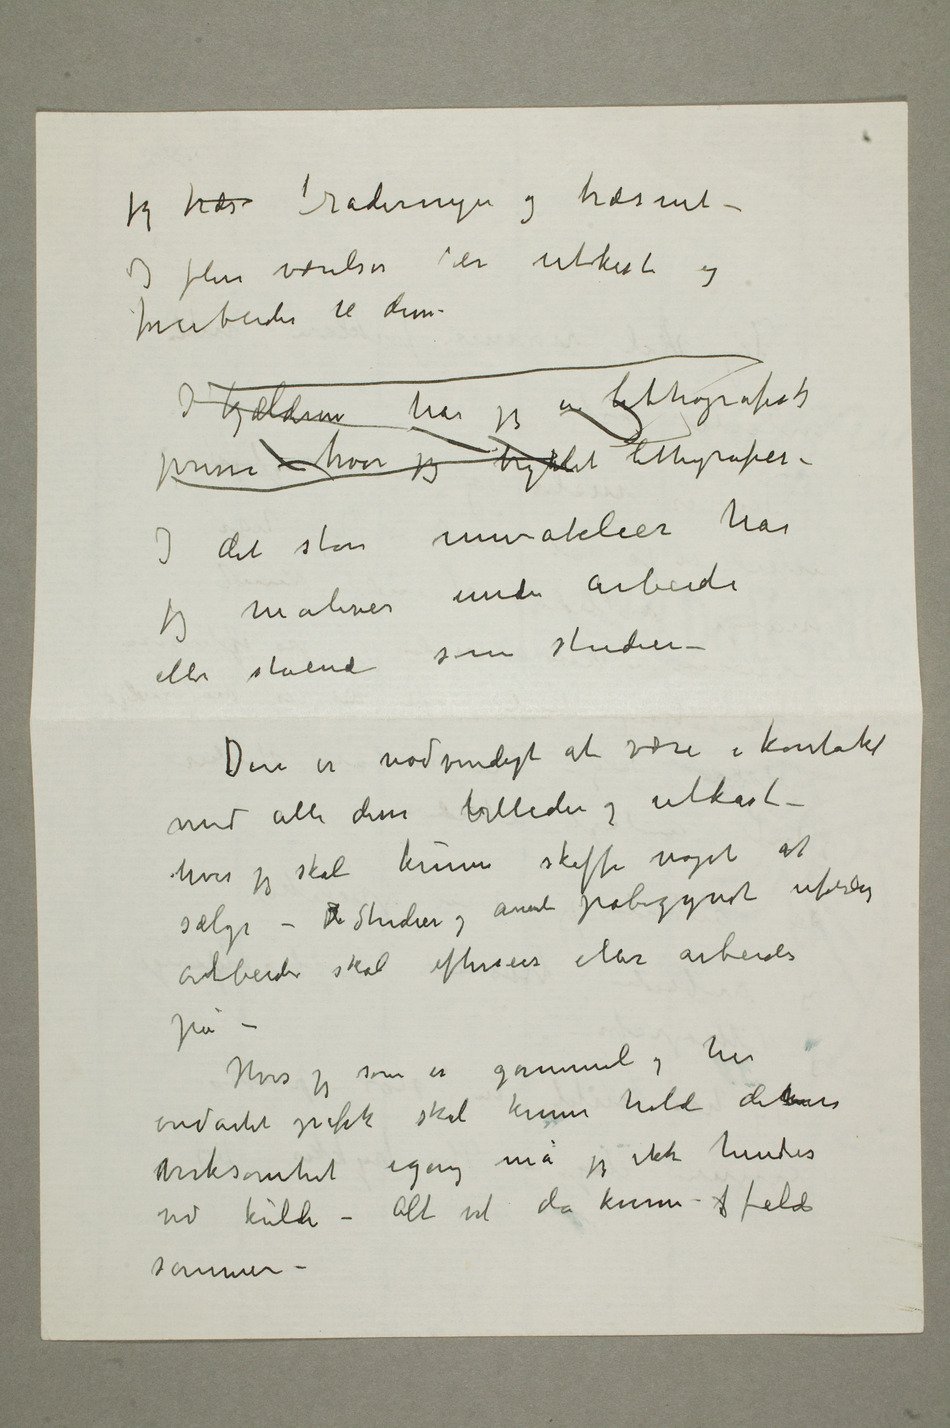 jeg træs raderinger og træsnit –
I flere værelser er utkast og
forarbeider til dem.
I Kjælderen har jeg en lithografisk
presse – hvor jeg trykket lithografier –
I det store murateliér har
jeg malerier under arbeide
eller stående som studier –
Det er nødvendigt at være i kontakt
med alle disse billeder og utkast –
hvis jeg skal kunne skaffe noget at
sælge – De Studier og andre påbegyndte ufærdige
arbeider skal efterseees eller arbeides
på –
Hvis jeg som er gammel og har
øieslag skal kunne holde denne
virksomhet igang må jeg ikke hindres
ved kulde – Alt vil da kunne f falde
sammen –